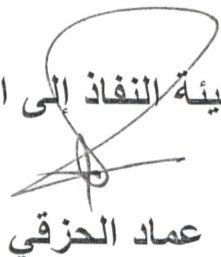 يئة النفاذ إلى ا
عماد الحزقي